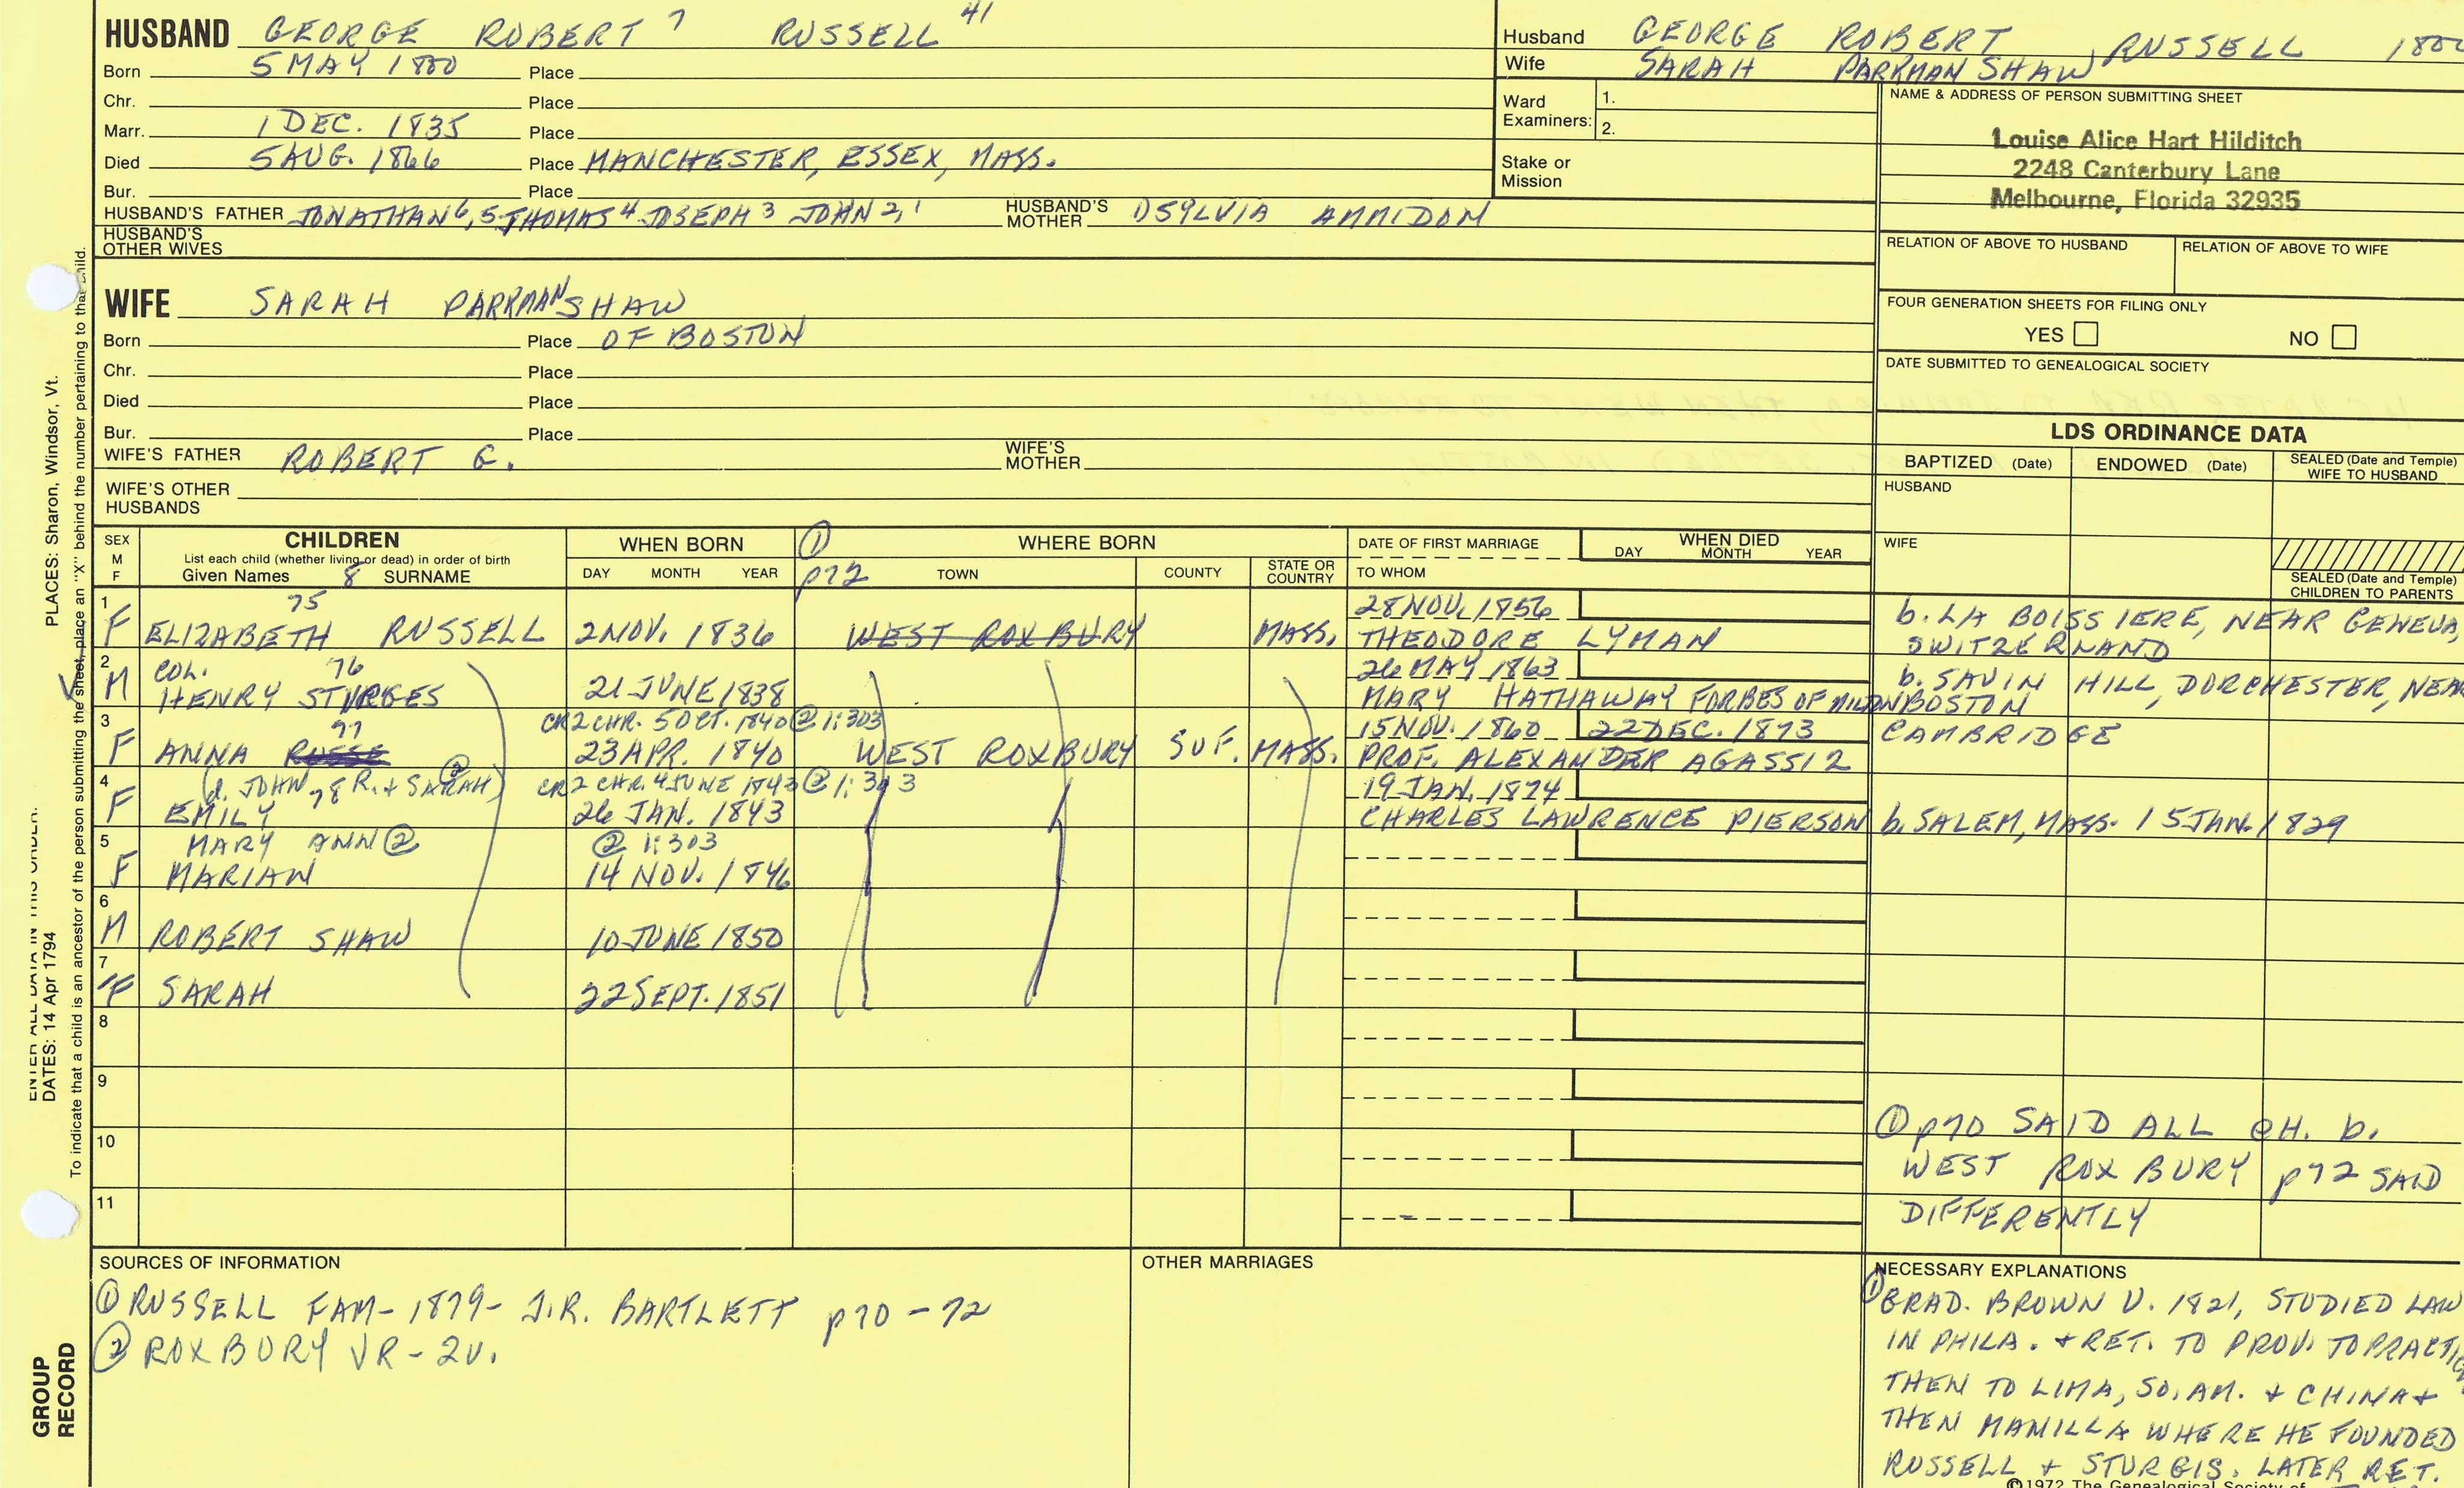 HUSBAND GEORGE ROBERT 7 RUSSELL 41
Born 5 MAY 1800 Place
Chr. Place
Marr. 1 DEC. 1835 Place
Died 5 AUG. 1866 Place MANCHESTER, ESSEX, MASS.
Bur. Place
HUSBAND'S FATHER JONATHAN 6, 5 THOMAS 4 JOSEPH 3 JOHN 2, 1 HUSBAND'S MOTHER DSYLVIA AMMIDOM
HUSBAND'S OTHER WIVES
WIFE SARAH PARKMAN SHAW
Born Place OF BOSTON
Chr. Place
Died Place
Bur. Place
WIFE'S FATHER ROBERT G. WIFE'S MOTHER
WIFE'S OTHER HUSBANDS
Husband GEORGE ROBERT RUSSELL 1800
Wife SARAH PARKMAN SHAW
Ward Examiners: 1.
2.
Stake or Mission
NAME & ADDRESS OF PERSON SUBMITTING SHEET
Louise Alice Hart Hilditch
2248 Canterbury Lane
Melbourne, Florida 32935
RELATION OF ABOVE TO HUSBAND RELATION OF ABOVE TO WIFE
FOUR GENERATION SHEETS FOR FILING ONLY
YES NO
DATE SUBMITTED TO GENEALOGICAL SOCIETY
LDS ORDINANCE DATA
BAPTIZED (Date) ENDOWED (Date) SEALED (Date and Temple) WIFE TO HUSBAND
HUSBAND
WIFE
SEALED (Date and Temple) CHILDREN TO PARENTS
SEX M F CHILDREN WHEN BORN ① WHERE BORN DATE OF FIRST MARRIAGE WHEN DIED
List each child (whether living or dead) in order of birth DAY MONTH YEAR
Given Names 8 SURNAME DAY MONTH YEAR p72 TOWN COUNTY STATE OR COUNTRY TO WHOM
1 75 28 NOV. 1856 b. LA BOISSIERE, NEAR GENEVA,
F ELIZABETH RUSSELL 2 NOV. 1836 WEST ROXBURY MASS. THEODORE LYMAN SWITZERNAND
2 COL. 76 26 MAY 1863 b. SAVIN HILL, DORCHESTER, NEAR
M HENRY STURGES 21 JUNE 1838 MARY HATHAWAY FORBES OF MILTON BOSTON
3 77 CR2 CHR. 5 OCT. 1840 @ 1:303 15 NOV. 1860 22 DEC. 1873 CAMBRIDGE
F ANNA RUSSE 23 APR. 1840 WEST ROXBURY SUF. MASS. PROF. ALEXANDER AGASSIZ
4 (d. JOHN R. + SARAH) ② 78 CR2 CHR. 4 JUNE 1843 @ 1:303 19 JAN. 1874
F EMILY 26 JAN. 1843 CHARLES LAWRENCE PIERSON b. SALEM, MASS. 15 JAN. 1829
5 MARY ANN ② ② 1:303
F MARIAN 14 NOV. 1846
6
M ROBERT SHAW 10 JUNE 1850
7
F SARAH 22 SEPT. 1851
8
9
10
11
① p70 SAID ALL CH. b.
WEST ROXBURY p72 SAID
DIFFERENTLY
SOURCES OF INFORMATION
① RUSSELL FAM - 1879 - J.R. BARTLETT p70 - 72
② ROXBURY VR - 2V.
OTHER MARRIAGES
NECESSARY EXPLANATIONS
① GRAD. BROWN U. 1821, STUDIED LAW
IN PHILA. + RET. TO PROV. TO PRACTICE
THEN TO LIMA, SO. AM. + CHINA +
THEN MANILLA WHERE HE FOUNDED
RUSSELL + STURGIS. LATER RET.
©1972 The Genealogical Society of
PLACES: Sharon, Windsor, Vt.
To indicate that a child is an ancestor of the person submitting the sheet, place an "X" behind the number pertaining to that child.
ENTER ALL DATA IN THIS ORDER:
DATES: 14 Apr 1794
GROUP RECORD